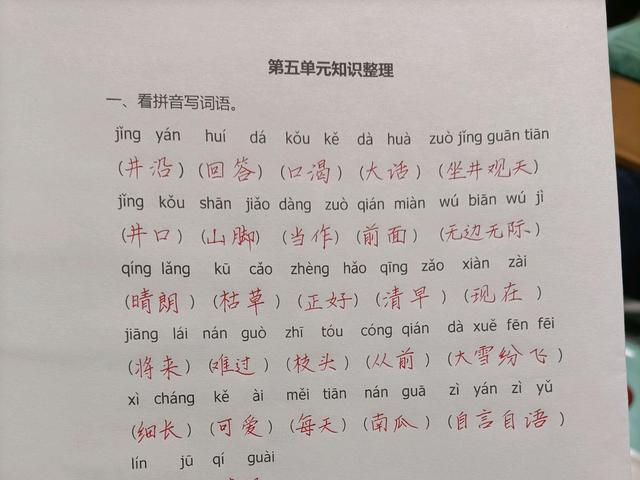 第五单元知识整理
一、看拼音写词语。
jǐng yán huí dá kǒu kě dà huà zuò jǐng guān tiān
(井沿) (回答) (口渴) (大话) (坐井观天)
jǐng kǒu shān jiǎo dàng zuò qián miàn wú biān wú jì
(井口) (山脚) (当作) (前面) (无边无际)
qíng lǎng kū cǎo zhèng hǎo qīng zǎo xiàn zài
(晴朗) (枯草) (正好) (清早) (现在)
jiāng lái nán guò zhī tóu cóng qián dà xuě fēn fēi
(将来) (难过) (枝头) (从前) (大雪纷飞)
xì cháng kě ài měi tiān nán guā zì yán zì yǔ
(细长) (可爱) (每天) (南瓜) (自言自语)
lín jū qí guài